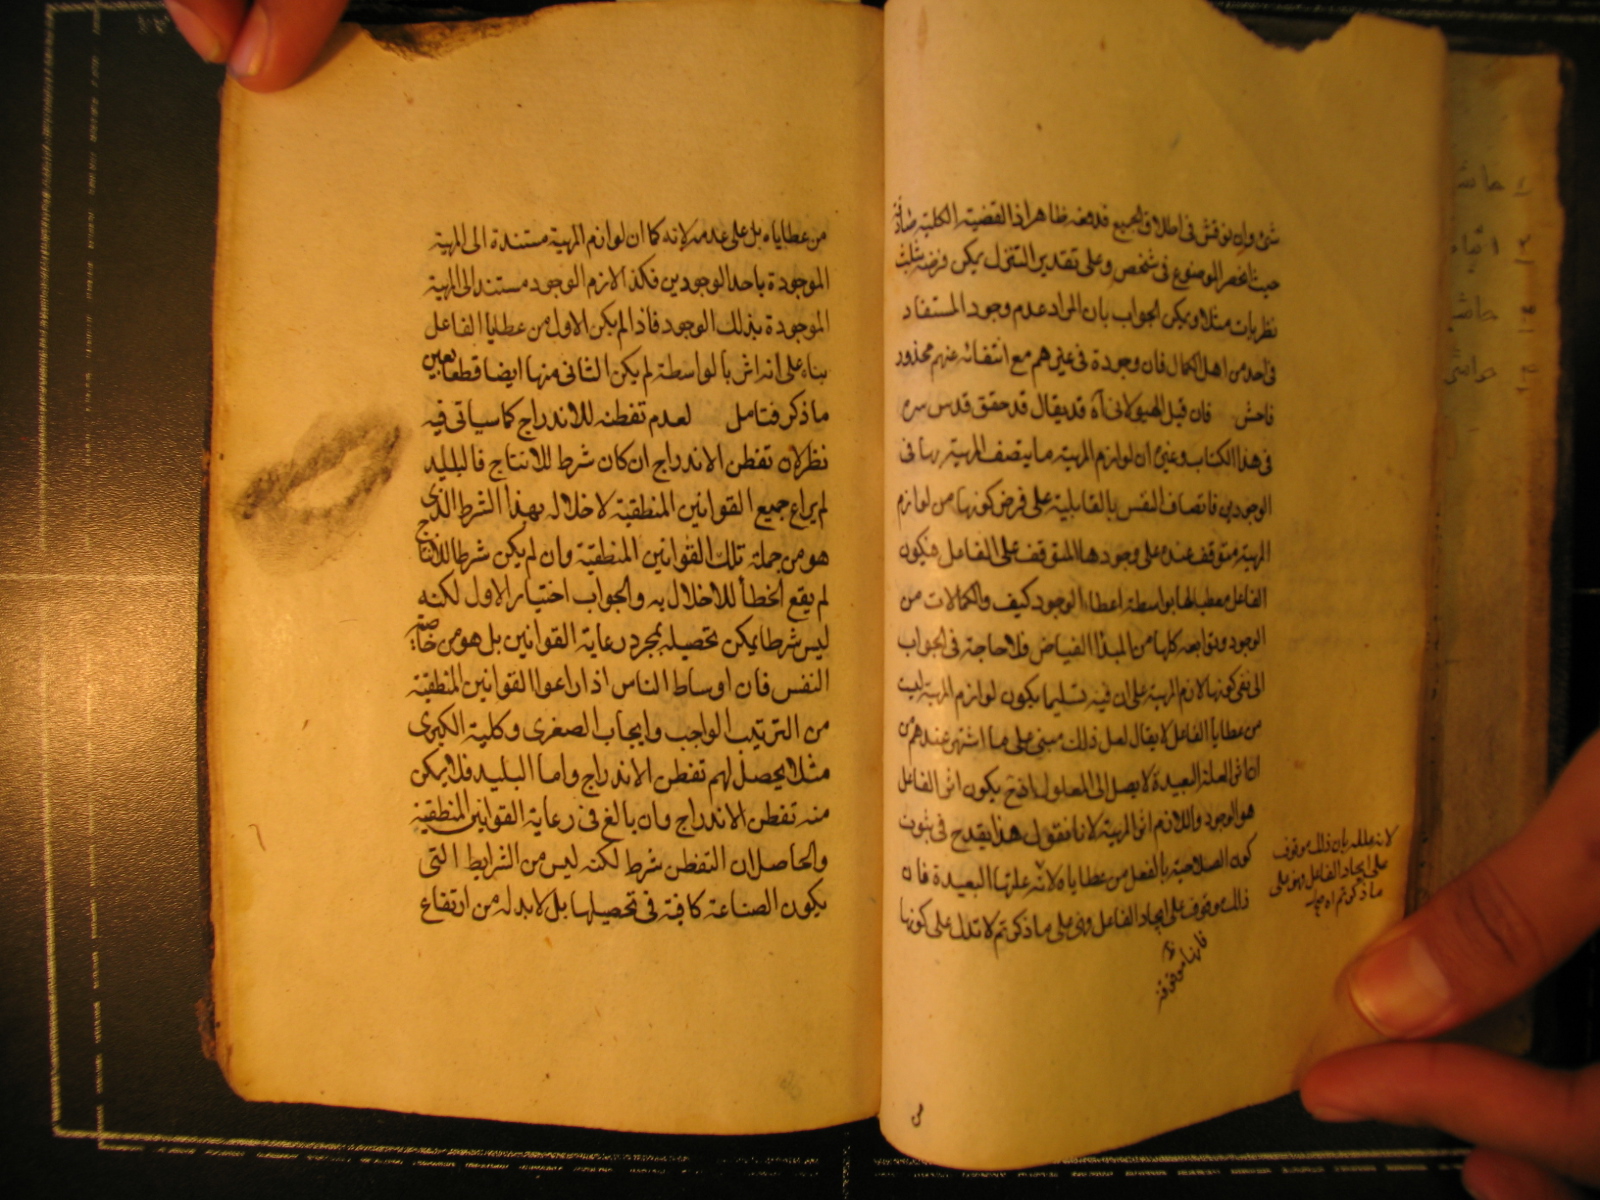 شئ وان نوقش فى اطلاق الجميع فدفعه ظاهر اذ القضية الكلية صادقة
حيث انحصر الموضوع فى شخص وعلى تقدير التنزل يمكن فرضه ثلث
نظريات مثلا ويمكن الجواب بان المراد عدم وجود المستفاد
فى احد من اهل الكمال فان وجودة فى غيرهم مع انتفائه عنهم محذور
فاحش فان قيل الهيولانى آه قد يقال قد حقق قدس سره
فى هذا الكتاب وغيره ان لوازم المهية ما يتصف المهية بها فى
الوجودين فاتصاف النفس بالقابلية على فرض كونها من لوازم
المهية متوقف عنده على وجودها المتوقف على الفاعل فيكون
الفاعل معطيا لها بواسطة اعطاء الوجود كيف والكمالات من
الوجود وتوابعه كلها من المبدأ الفياض فلا حاجة فى الجواب
الى نفى كونها لازم المهية على ان فيه تسليما بكون لوازم المهية ليست
من عطايا الفاعل لا يقال لعل ذلك مبنى على ما اشتهر عندهم من
ان اثر العلة البعيدة لا يصل الى المعلول اذ ح يكون اثر الفاعل
هو الوجود واللازم اثر المهية لانا نقول هذا يقدح فى ثبوت
كون الصلاحية بالفعل من عطاياه لانه علتها البعيدة فان
ذلك موقوف على ايجاد الفاعل وهى على ما ذكر ثم لا تدل على كونها
فانها موقوفة
لانه علله بان ذلك موقوف
على ايجاد الفاعل وهو على
ما ذكر ثم اه
من عطاياه بل على عدمه لانه كما ان لوازم المهية مستندة الى المهية
الموجودة باحد الوجودين فكذا لازم الوجود مستند الى المهية
الموجودة بذلك الوجود فاذا لم يكن الاول من عطايا الفاعل
بناء على انه اثر بالواسطة لم يكن الثانى منها ايضا قطعا بعين
ما ذكر فتامل لعدم تفطنه للاندراج كما سياتى فيه
نظر لان تفطن الاندراج ان كان شرط للانتاج فالبليد
لم يراع جميع القوانين المنطقية لاخلاله بهذا الشرط الذى
هو من جملة تلك القوانين المنطقية وان لم يكن شرطا للانتاج
لم يقع الخطأ للاخلال به والجواب اختيار الاول لكنه
ليس شرطا يمكن تحصيله بمجرد رعاية القوانين بل هو من خاصة
النفس فان اوساط الناس اذا راعوا القوانين المنطقية
من الترتيب الواجب وايجاب الصغرى وكلية الكبرى
مثلا يحصل لهم تفطن الاندراج واما البليد فلا يمكن
منه تفطن الاندراج وان بالغ فى رعاية القوانين المنطقية
والحاصل ان التفطن شرط لكنه ليس من الشرايط التى
يكون الصناعة كافية فى تحصيلها بل لابد له من ارتفاع